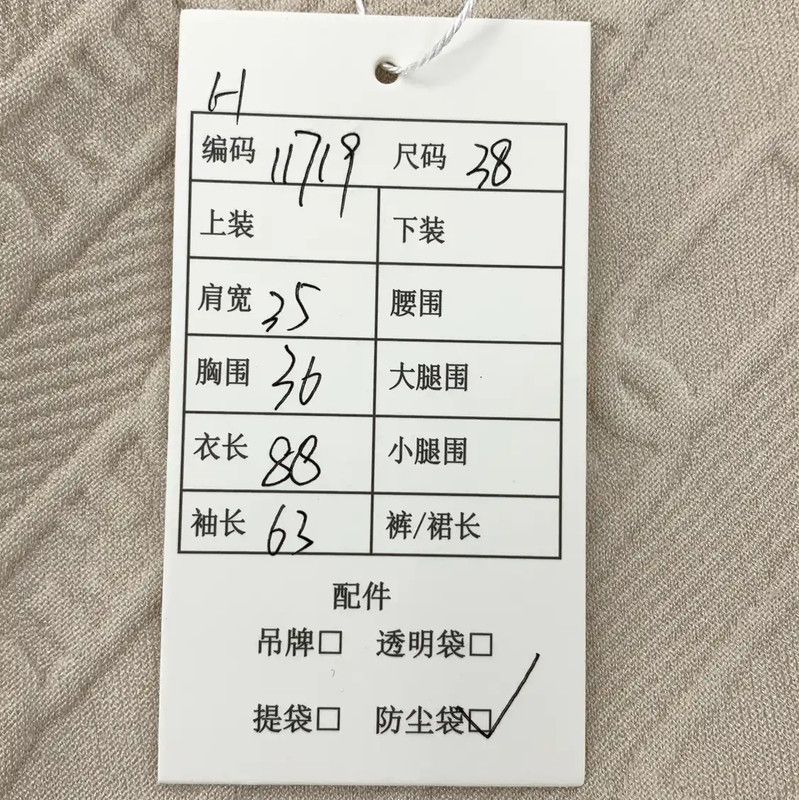 H
编码 11719 尺码 38
上装 下装
肩宽 35 腰围
胸围 36 大腿围
衣长 88 小腿围
袖长 63 裤/裙长
配件
吊牌□ 透明袋□
提袋□ 防尘袋☑